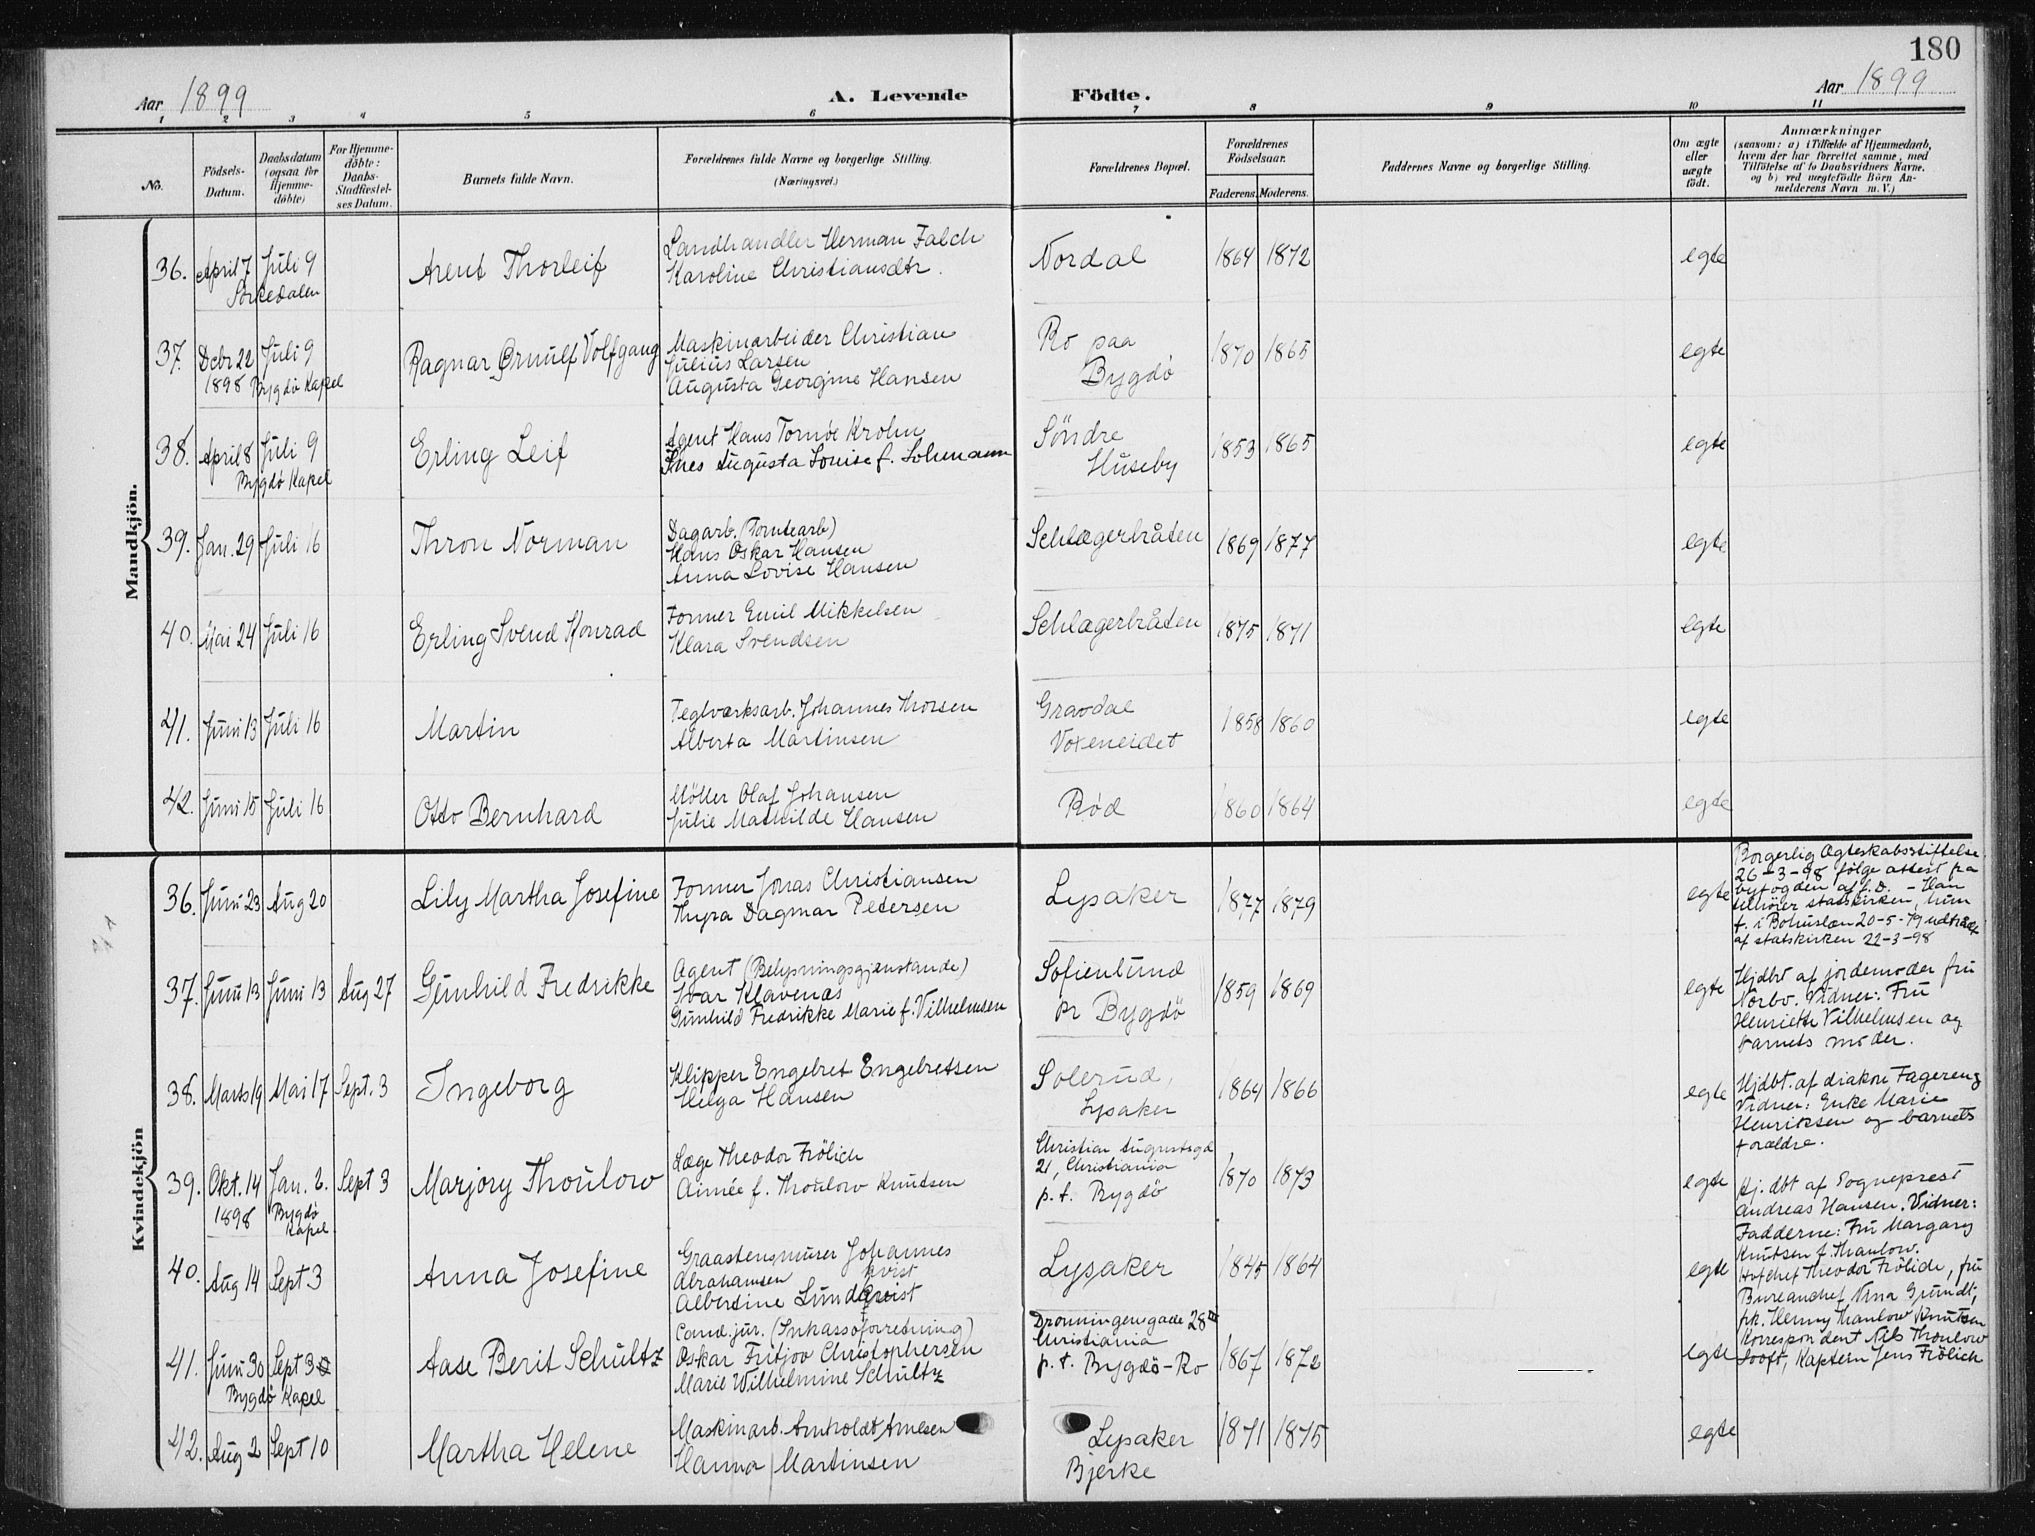 180
Aar 1899
A. Levende Födte.
Aar 1899
1 2 3 4 5 6 7 8 9 10 11
No.
Födsels-
Datum.
Daabsdatum
(ogsaa for
Hjemme-
döbte)
For Hjemme-
döbte:
Daabs-
Stadfæstel-
ses Datum.
Barnets fulde Navn.
Forældrenes fulde Navne og borgerlige Stilling.
(Næringsvei.)
Forældrenes Bopæl.
Forældrenes
Födselsaar.
Faderens. Moderens.
Faddernes Navne og borgerlige Stilling.
Om ægte
eller
uægte
födt.
Anmærkninger
(saasom: a) i Tilfælde af Hjemmedaab,
hvem der har forrettet samme, med
Tilföielse af to Daabsvidners Navne.
og b) ved uægtefödte Börn An-
melderens Navn m. V.)
Mandkjön.
36. April 7 Juli 9
Sørkedalen
Arent Thorleif
Landhandler Herman Falch
Karoline Christiansdtr.
Nordal
1864 1872
egte
37. Debr 22 Juli 9
1898 Bygdø Kapel
Ragnar Ørnulf Volfgang
Maskinarbeider Christian
Julius Larsen
Augusta Georgine Hansen
Ro paa
Bygdø
1870 1865
egte
38. April 8 Juli 9
Bygdø Kapel
Erling Leif
Agent Hans Tornøe Krohn
Ines Augusta Louise f. Lohmann
Söndre
Huseby
1853 1865
egte
39. Jan. 29 Juli 16
Thron Norman
Dagarb. (Tomtearb)
Hans Oskar Hansen
Anna Lovise Hansen
Schlagerbråten
1869 1877
egte
40. Mai 24 Juli 16
Erling Svend Konrad
Former Emil Mikkelsen
Klara Svendsen
Schlagerbråten
1875 1871
egte
41. Juni 13 Juli 16
Martin
Teglværksarb. Johannes Thorsen
Alberta Martinsen
Gravdal
Voxeneidet
1858 1860
egte
42. Juni 15 Juli 16
Otto Bernhard
Møller Olaf Johansen
Julie Mathilde Hansen
Rød
1860 1864
egte
Kvindekjön
36. Juni 23 Aug 20
Lily Martha Josefine
Former Jonas Christiansen
Thyra Dagmar Petersen
Lysaker
1877 1879
egte
Borgerlig Ægteskabsstiftelse
26-3-98 følge attest fra
byfogden af f.D. - Han
tilhører statskirken, hun
f. i Bohuslæn 20-5-79 udtrådt
af statskirken 22-3-98
37. Juni 13 Juni 13 Aug 27
Gunhild Fredrikke
Agent (Belysningsgjenstande)
Ivar Klavenæs
Gunhild Fredrikke Marie f. Vilhelmsen
Sofienlund
pr Bygdø
1859 1869
egte
Hjdbt af jordemoder fru
Norbv. Vidner: Fru
Henriette Vilhelmsen og
barnets moder.
38. Marts 19 Mai 17 Sept. 3
Ingeborg
Klipper Engebret Engebretsen
Helga Hansen
Solerud,
Lysaker
1864 1866
egte
Hjdbt. af diakon Fagereng
Vidner: Enke Marie
Henriksen og barnets
forældre.
39. Okt. 14 Jan. 2. Sept 3
1898 Bygdø
Kapel
Marjory Thoulow
Læge Theodor Frölich
Aimée f. Thoulow Knutsen
Christian Augustsgd
21, Christiania
p. t. Bygdö
1870 1873
egte
Hj. dbt af Sogneprest
Andreas Hansen. Vidner:
Fadderne: Fru Margary
Knutsen f. Thaulow.
Hofchef Theodor Frölich, fru
Bureauchef Nina Grundt,
frk. Henny Thaulow Knutsen
Korrespondent Nils Thoulow
Looft, Kaptein Jens Frölich
40. Aug 14 Sept 3
Anna Josefine
Graastensmurer Johannes
Abrahamsen qvist
Albertine Lundqvist
Lysaker
1845 1864
egte
41. Juni 30 Sept 3
Bygdø Kapel
Aase Berit Schultz
Cand. jur. (Inkassoforretning)
Oskar Fritjov Christophersen
Marie Wilhelmine Schultz
Dronningensgade 28 III
Christiania
p. t. Bygdö-Ro
1867 1872
egte
42. Aug 2 Sept 10
Martha Helene
Maskinarb. Arnholdt Arnesen
Hanna Martinsen
Lysaker
Bjerke
1871 1875
egte